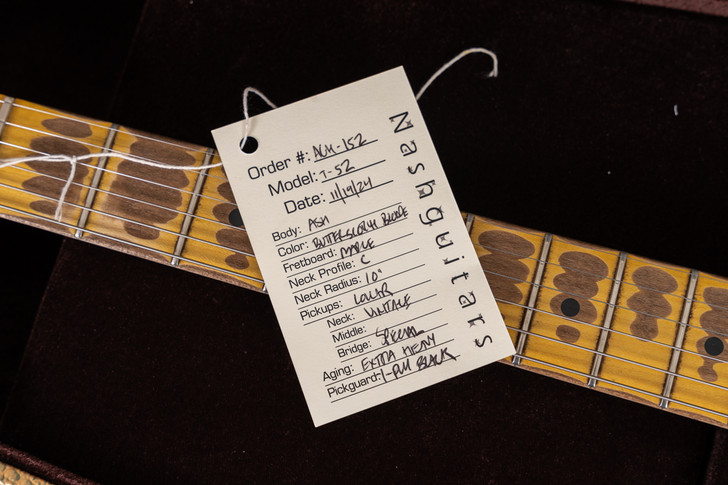 Nashguitars
Order #: ACM-152
Model: T-52
Date: 11/19/24
Body: ASH
Color: BUTTERSCOTCH BLONDE
Fretboard: MAPLE
Neck Profile: C
Neck Radius: 10"
Pickups: LOLLAR
Neck: VINTAGE
Middle:
Bridge: SPECIAL
Aging: EXTRA HEAVY
Pickguard: 1-PLY BLACK